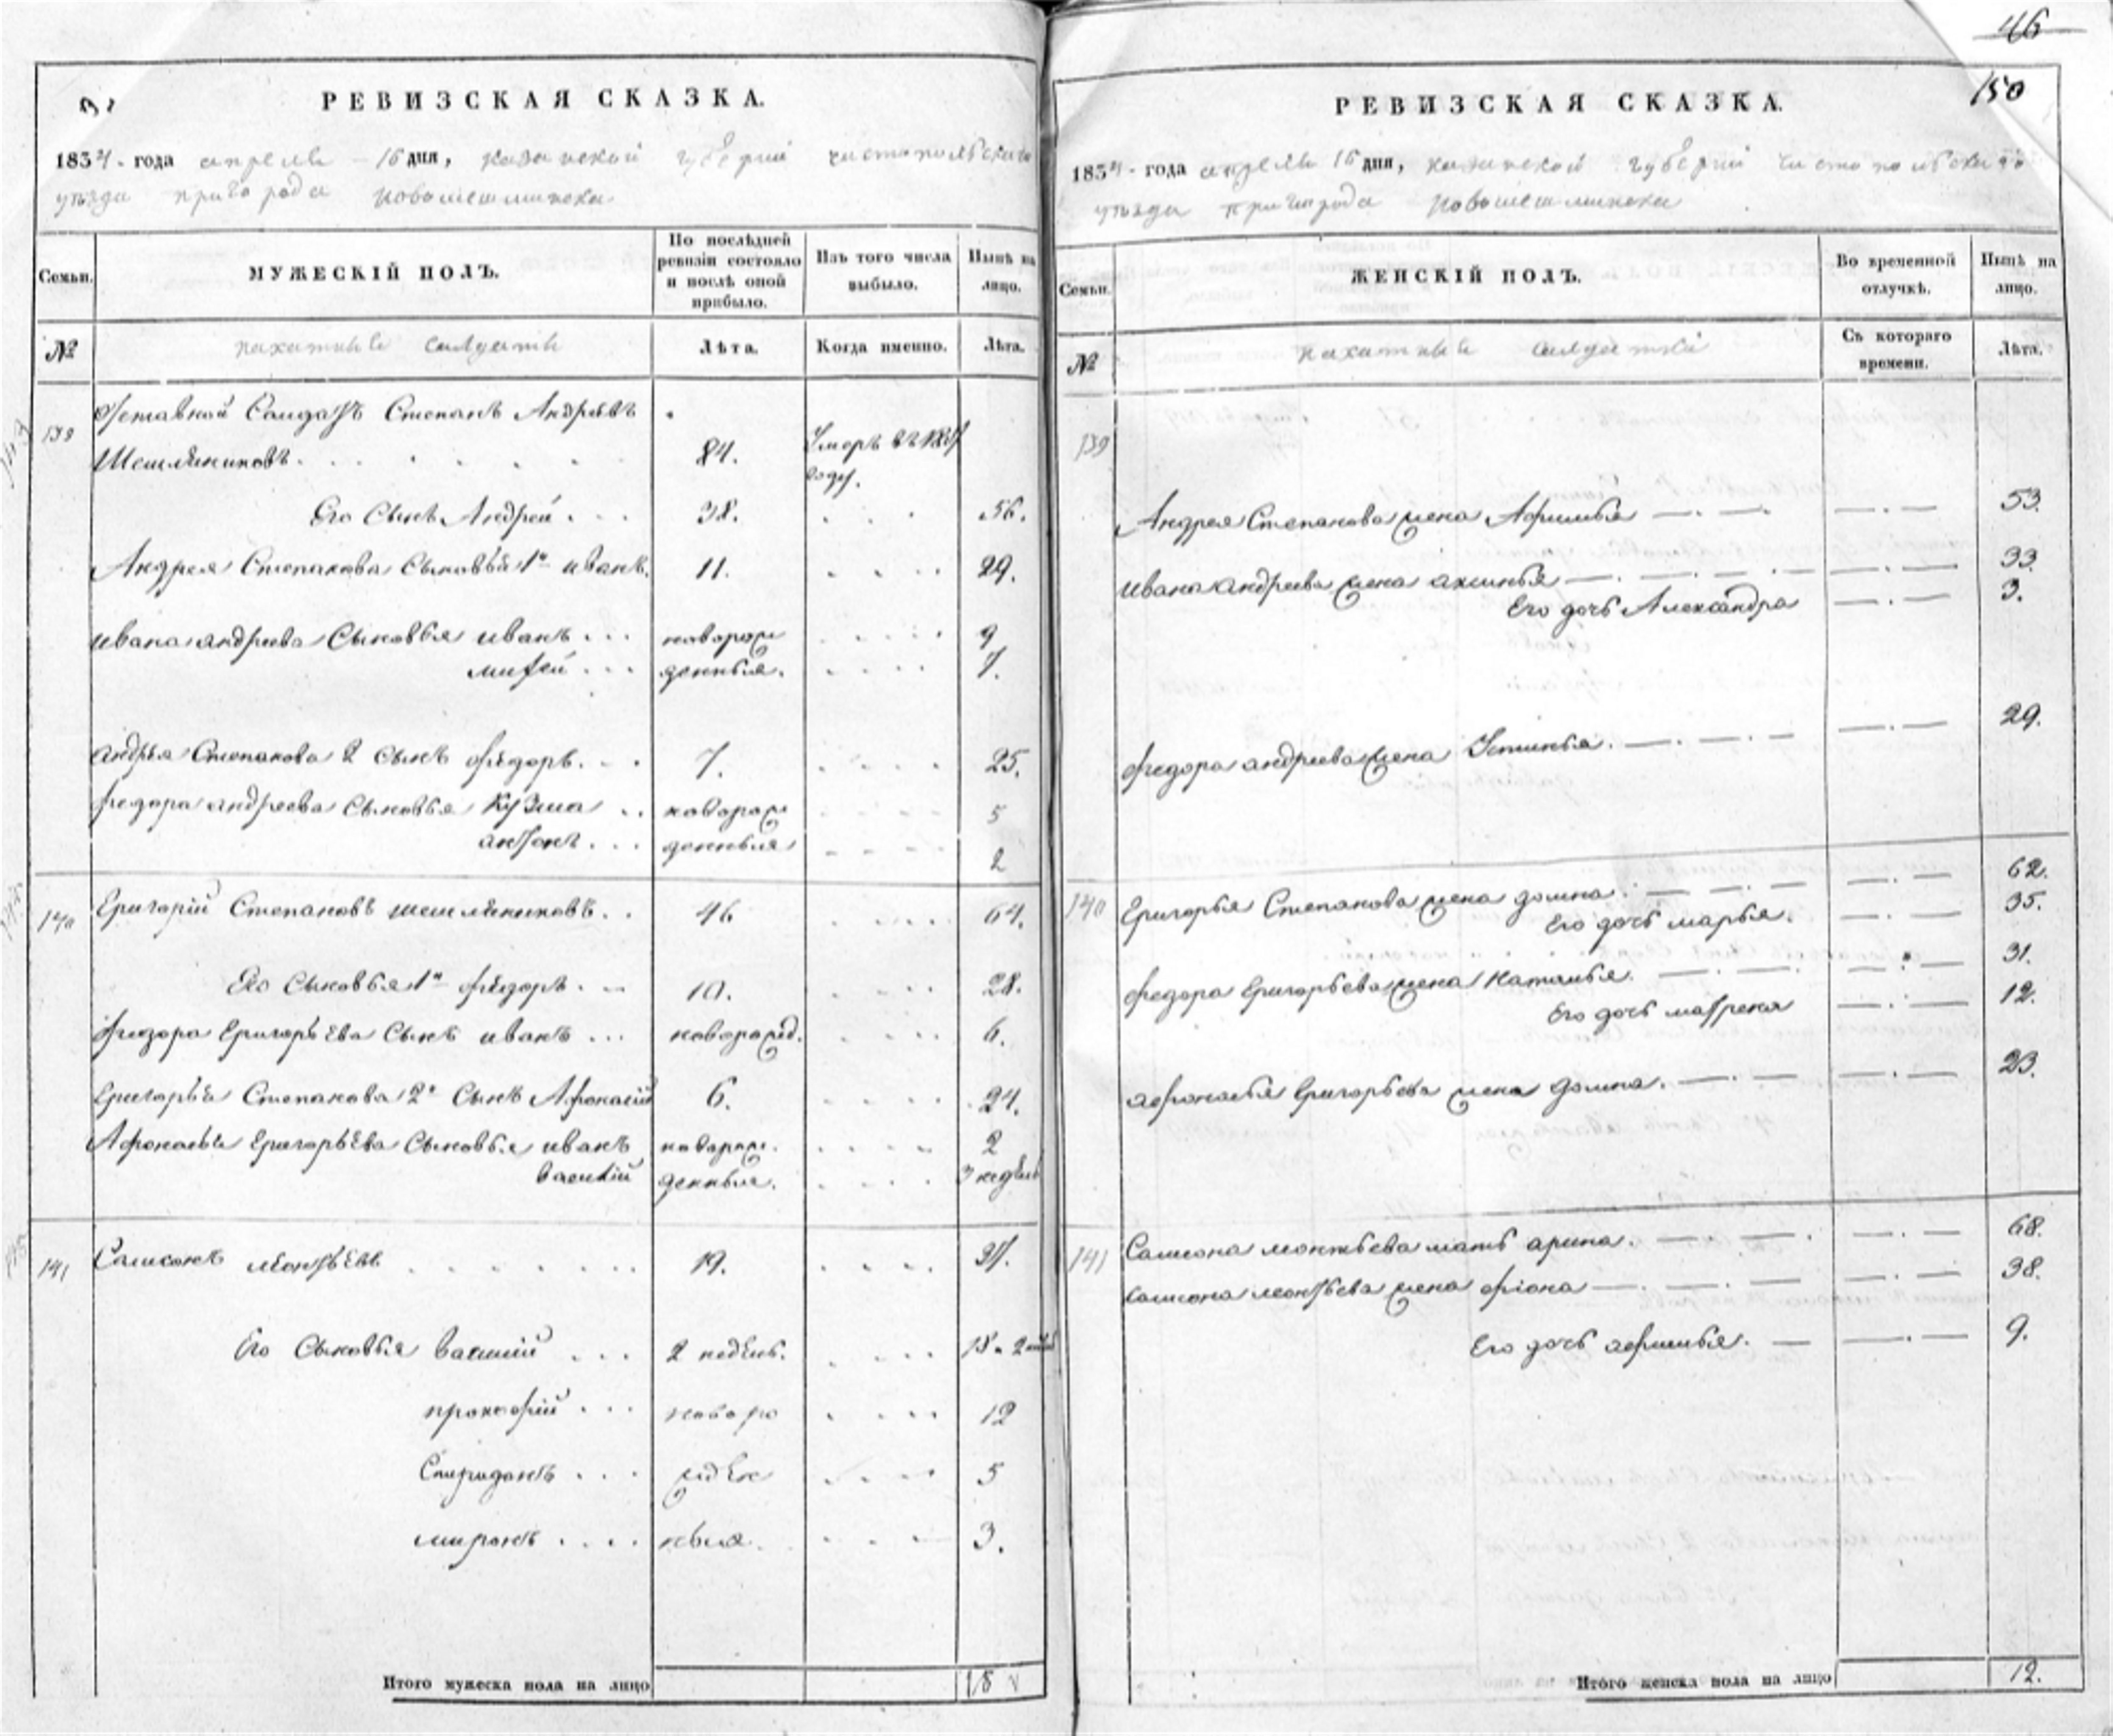 РЕВИЗСКАЯ СКАЗКА.
1834 года апреля 16 дня, казанской губернии чистопольскаго
уѣзда пригорода новошешминска
Семьи.
МУЖЕСКІЙ ПОЛЪ.
По послѣдней ревизіи состояло и послѣ оной прибыло.
Изъ того числа выбыло.
Нынѣ на лицо.
№
пахатные солдаты
Лѣта.
Когда именно.
Лѣта.
139 Отставной Солдатъ Степанъ Андрѣевъ
Шешминиковъ. 84. Умеръ въ году.
Его Сынъ Андрей 38. 56.
Андрея Степанова Сыновья 1й иванъ. 11. 29.
ивана андреева Сыновья иванъ новорож 9
митрей денныя. 7.
андрея Степанова 2 Сынъ фёдоръ. 7. 25.
федора андреева Сыновья Кузма новорож 5
антонъ денныя 2
140 Григорій Степановъ шешминиковъ 46 64.
Его Сыновья 1й фёдоръ 10. 28.
федора Григорьева Сынъ иванъ новорожд. 6.
Григорья Степанова 2й Сынъ Афонасій 6. 24.
Афонасья Григорьева Сыновья иванъ новорож. 2
василій денныя. 3 недѣль
141 Самсонъ леонтьевъ 19. 37.
Его Сыновья василий 2 недѣль. 18.
прокофій новоро 12
Спиридонъ ждён 5
миронъ ныя. 3.
Итого мужеска пола на лицо 18
46
150
РЕВИЗСКАЯ СКАЗКА.
1834 года апреля 16 дня, казанской губерний чистопольскаго
уѣзда пригорода новошешминска
Семьи.
ЖЕНСКІЙ ПОЛЪ.
Во временной отлучкѣ.
Нынѣ на лицо.
№
пахатныя солдатки
Съ котораго времени.
Лѣта.
139
Андрея Степанова жена Афимья 53.
ивана андреева жена аксинья 33.
Его дочь Александра 3.
федора андреева жена Устинья. 29.
140 Григорья Степанова жена домна 62.
Его дочь марья. 35.
федора Григорьева жена Наталья. 31.
Его дочь матрена 12.
афонасья Григорьева жена домна. 23.
141 Самсона леонтьева мать арина. 68.
самсона леонтьева жена фіона 38.
Его дочь афимья. 9.
Итого женска пола на лицо 12.